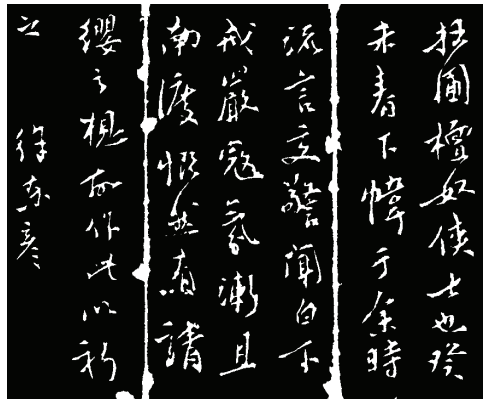 檀奴侠士也癸
未春下帷于余時
流言交警聞白下
戒嚴寇氛漸且
南渡慨然有請
纓之故作此以
之
徐彦